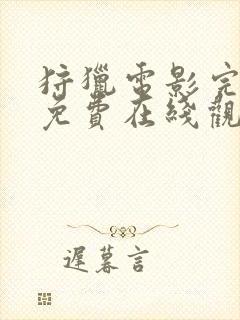 狩獵電影完
免費在綫觀
遲暮言